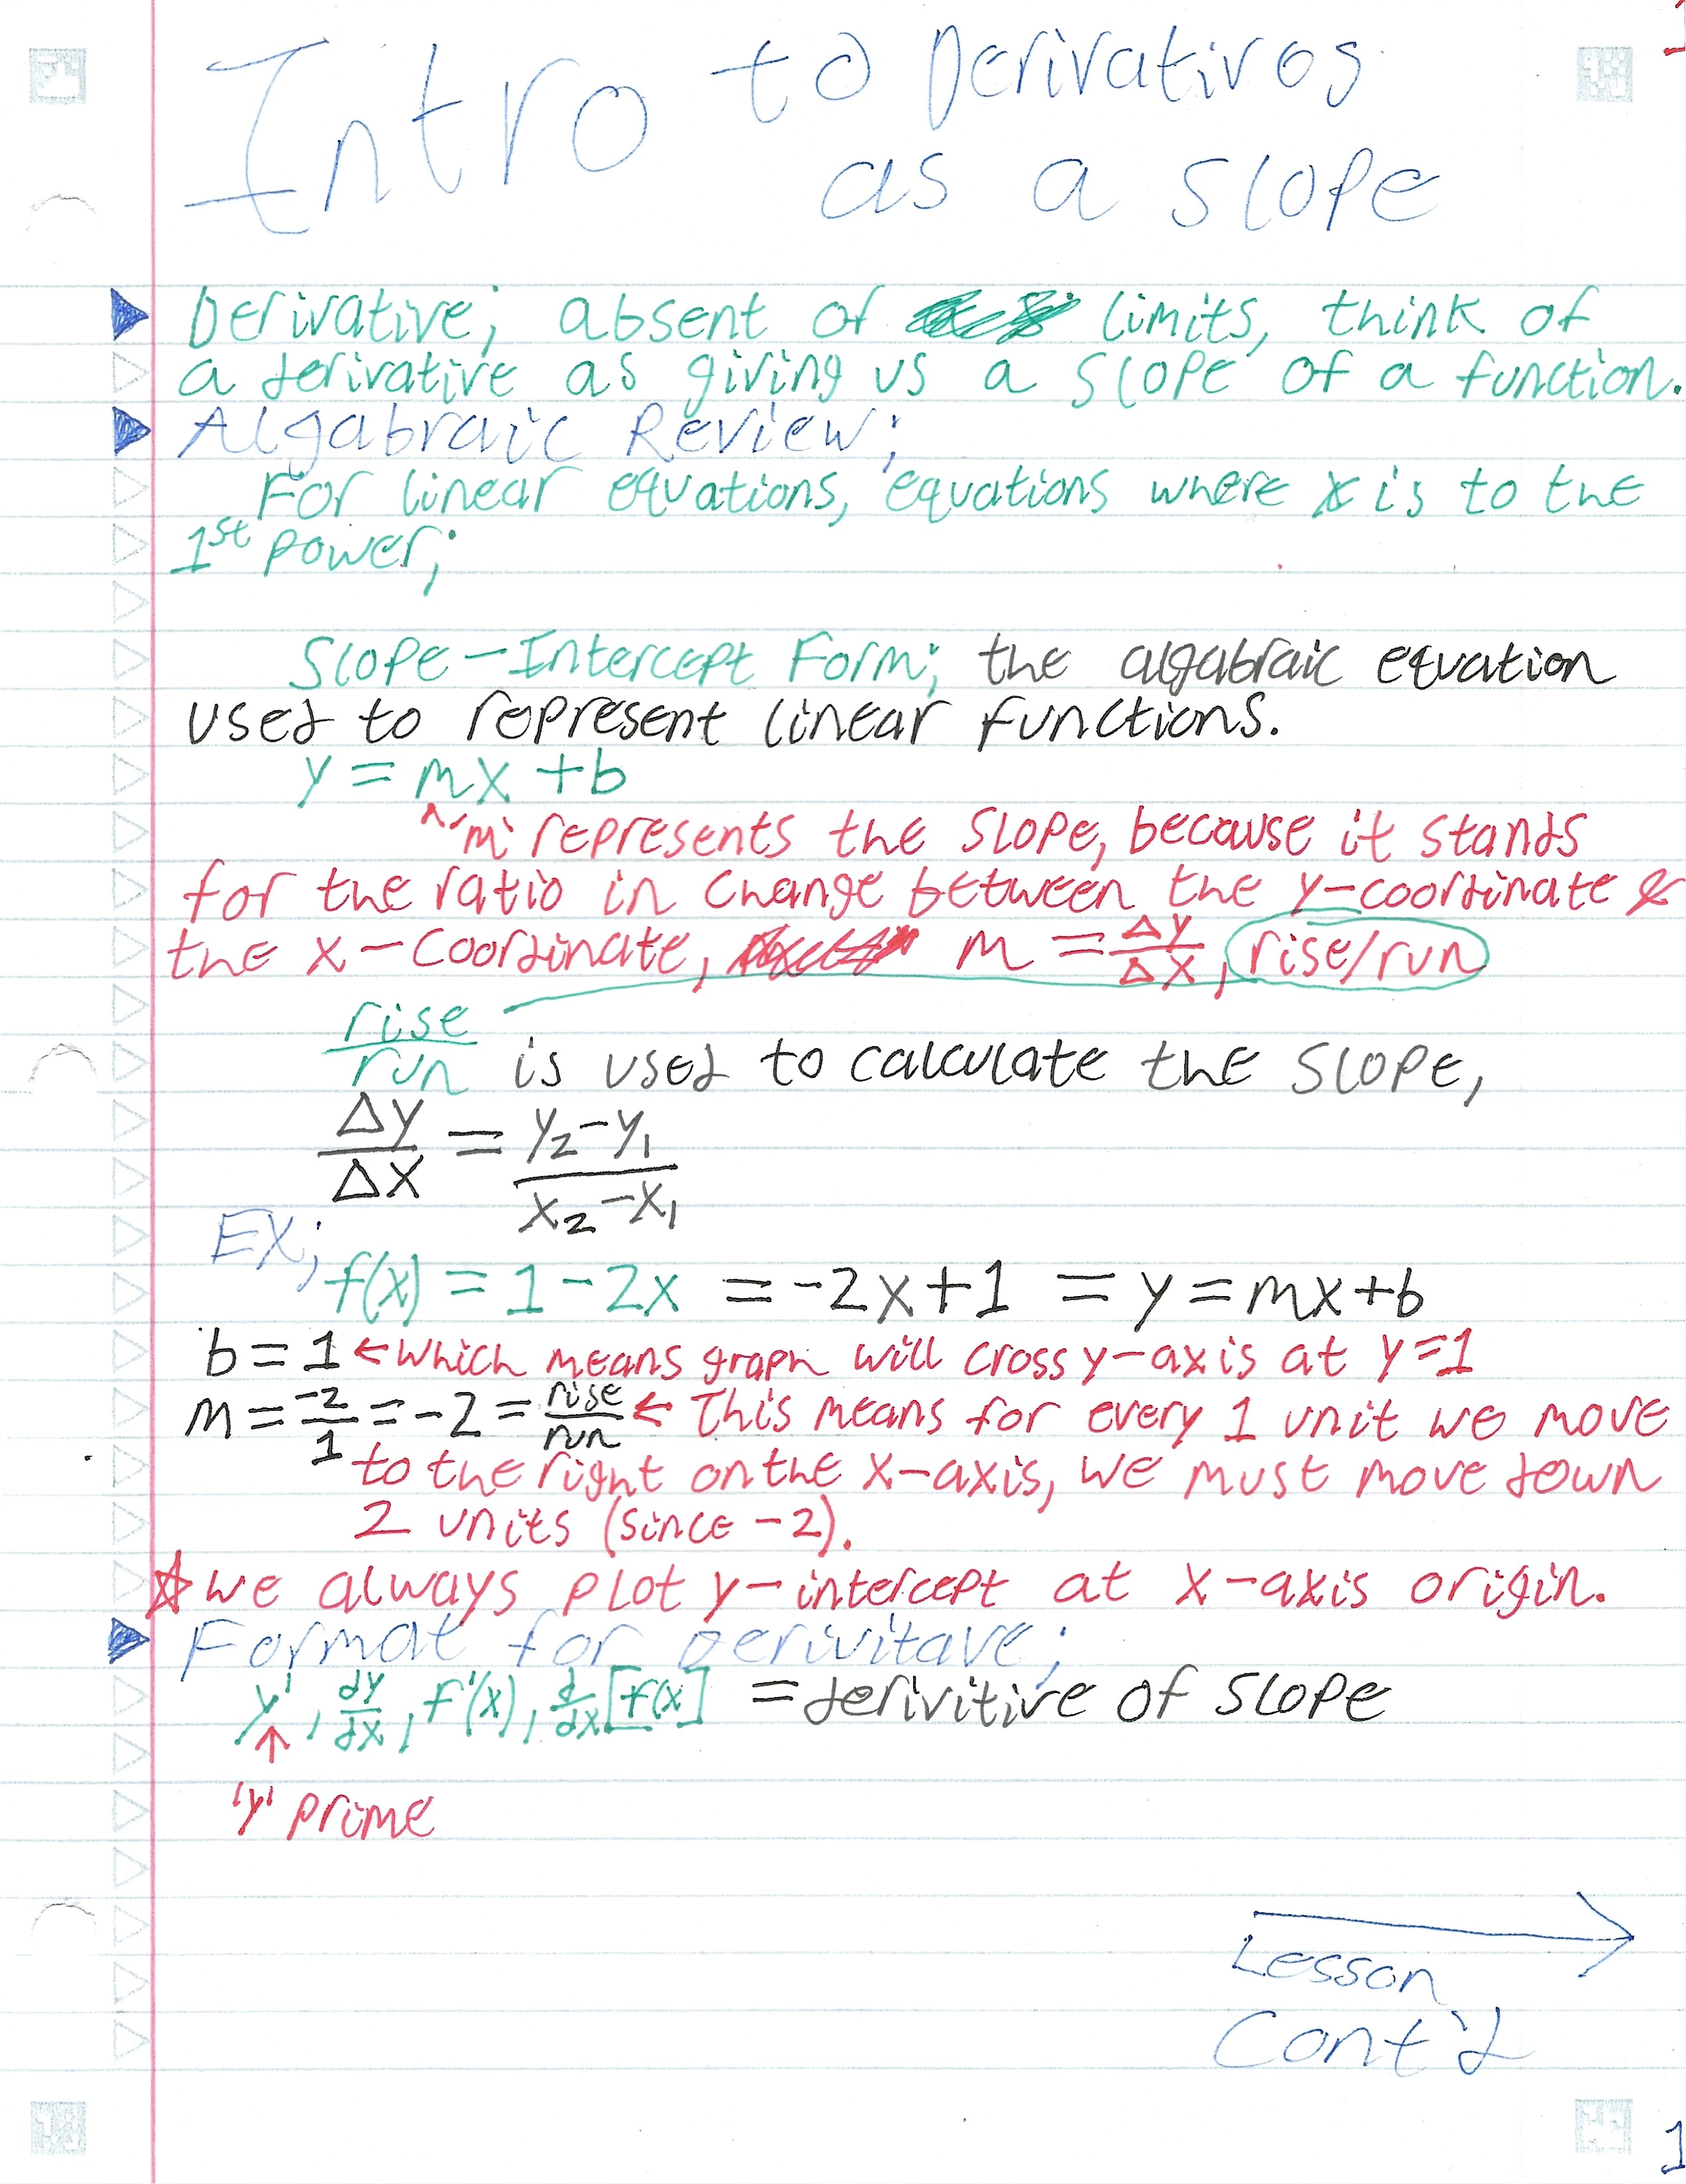 Intro to Derivatives
as a slope
Derivative; absent of limits, think of
a derivative as giving us a slope of a function.
Algabraic Review;
For linear equations, equations where x is to the
1st power;
Slope-Intercept Form; the algabraic equation
used to represent linear functions.
y = mx + b
^ 'm' represents the slope, because it stands
for the ratio in change between the y-coordinate &
the x-coordinate, m = Δy/Δx, rise/run
rise/run is used to calculate the slope,
Δy/Δx = y₂-y₁/x₂-x₁
EX;
f(x) = 1-2x = -2x+1 = y = mx+b
b = 1 ← which means graph will cross y-axis at y=1
m = -2/1 = -2 = rise/run ← This means for every 1 unit we move
to the right on the x-axis, we must move down
2 units (since -2).
☆ we always plot y-intercept at x-axis origin.
Format for Derivitave;
y', dy/dx, f'(x), d/dx[f(x)] = derivitive of slope
↑
'y' prime
Lesson
Cont'd
1